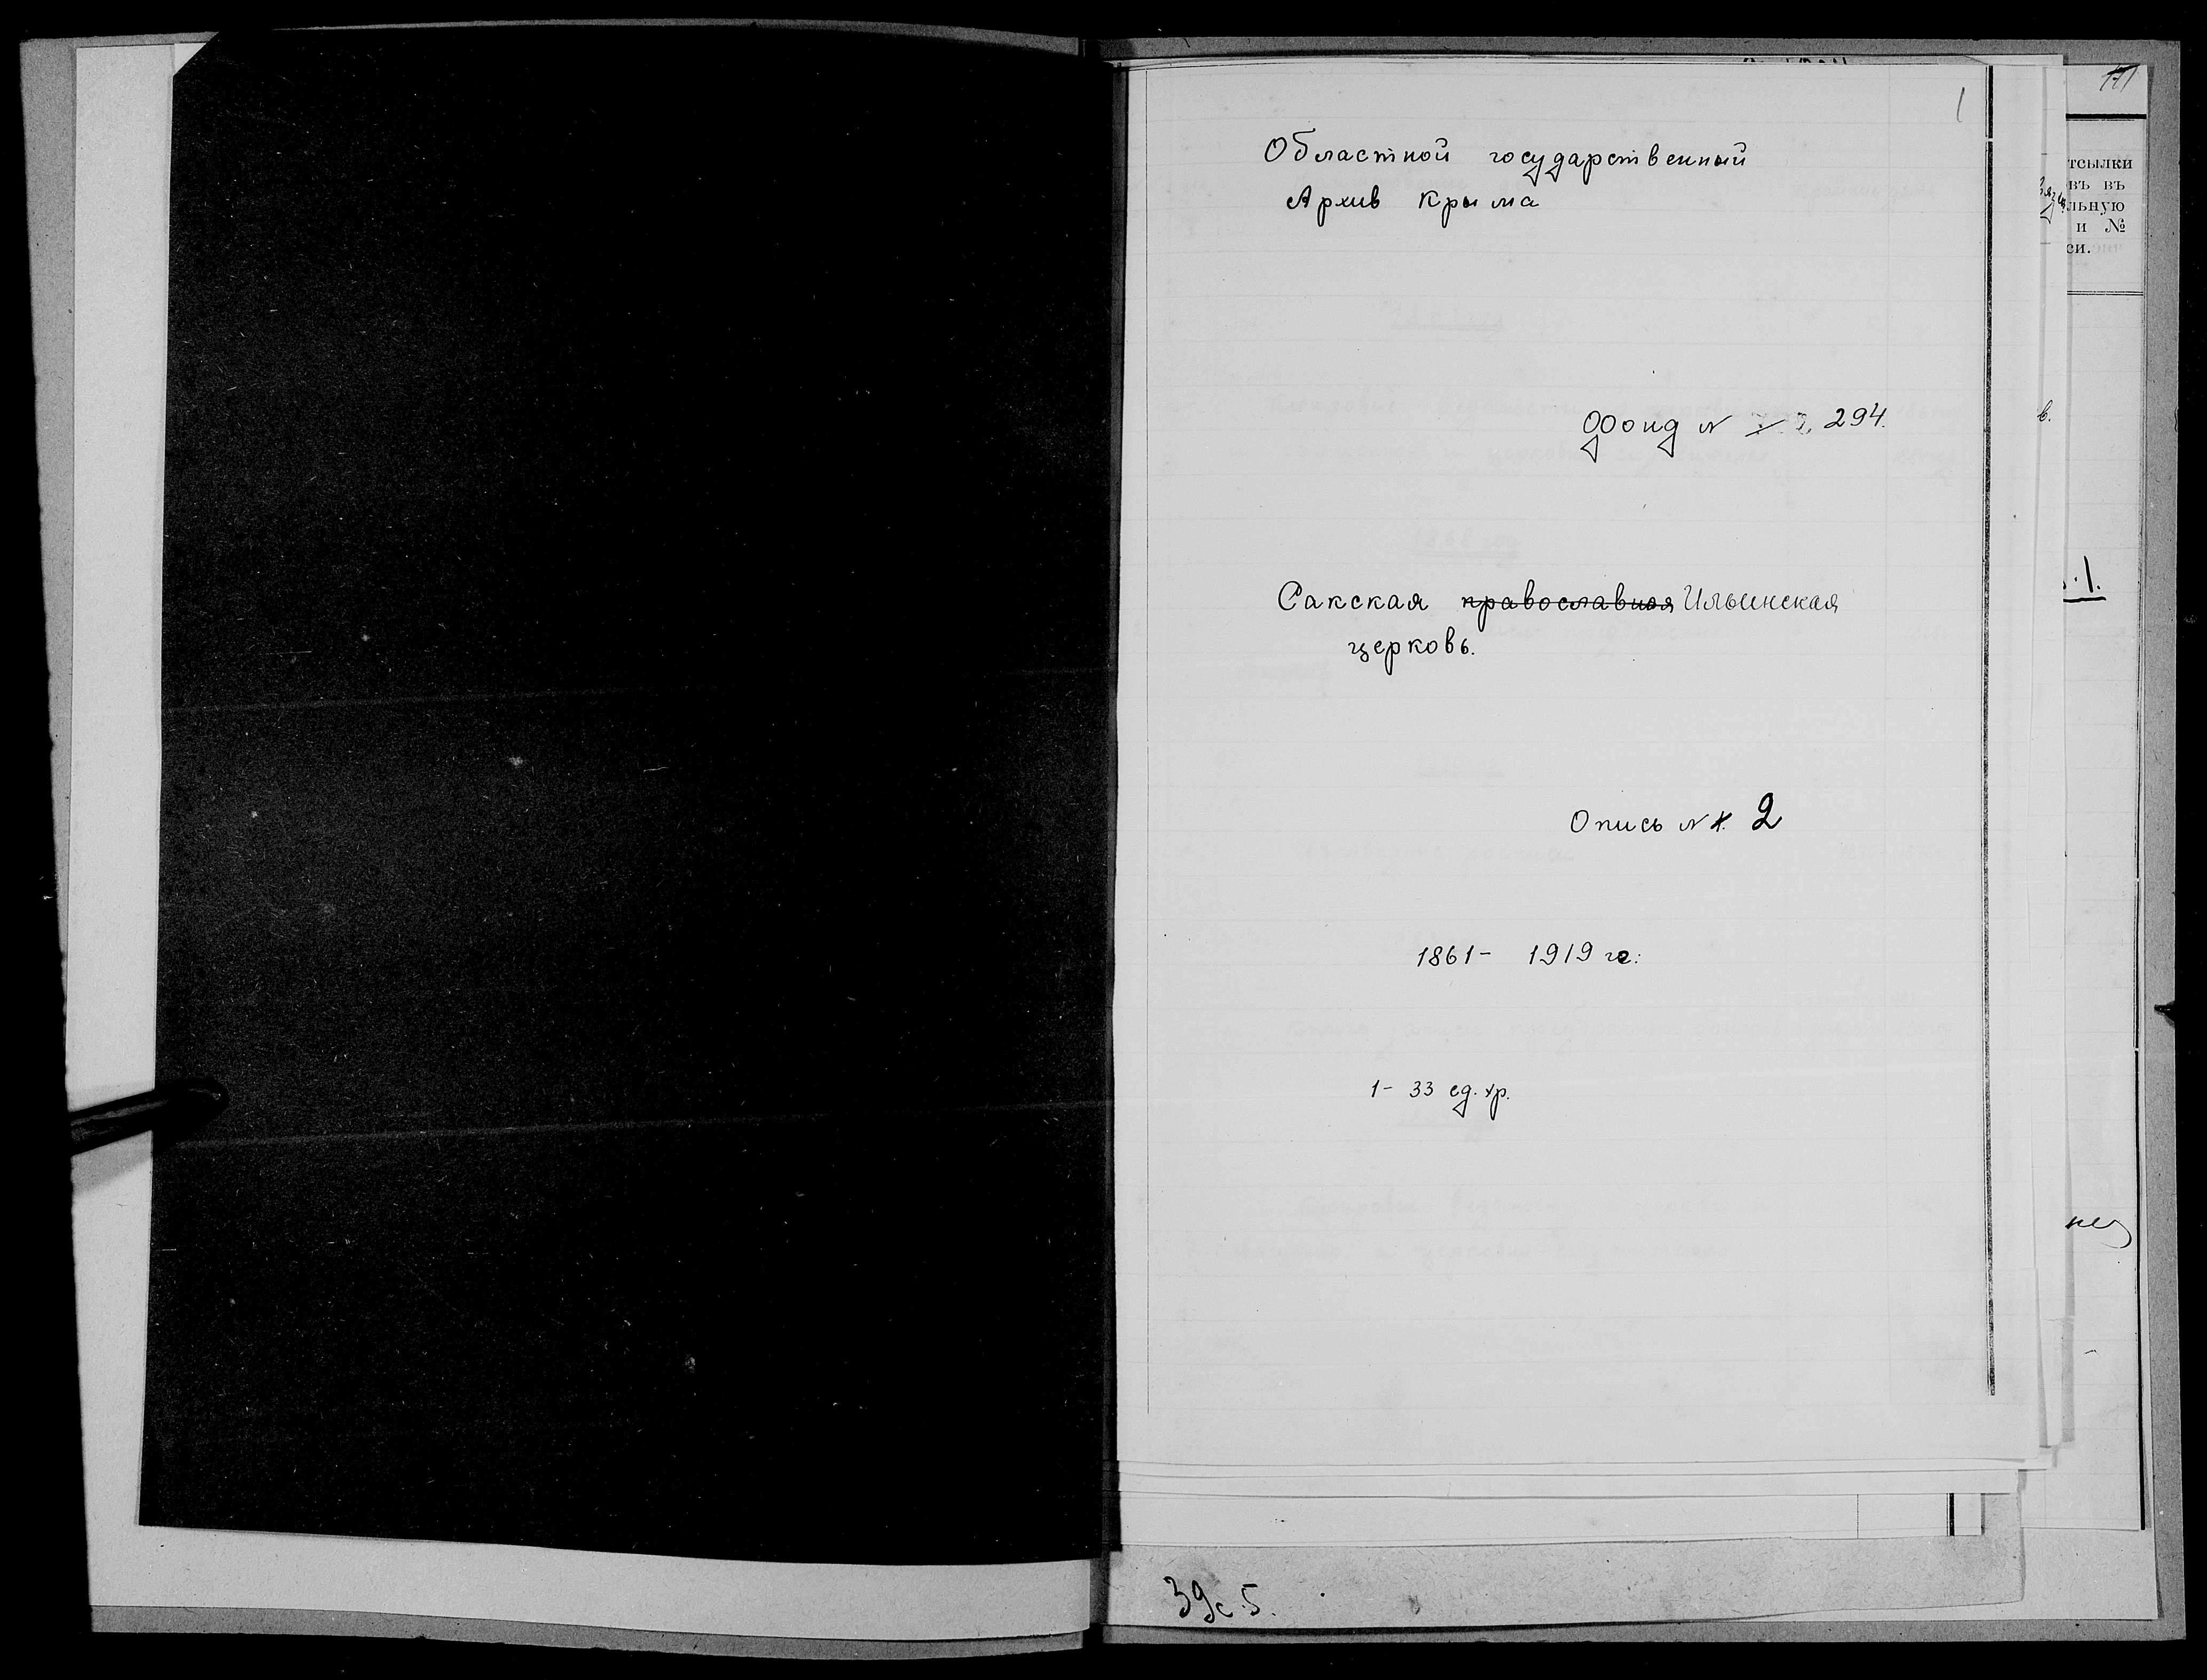 1
Областной государственный
Архив Крыма
Фонд N 294.
Сакская православная Ильинская
церковь.
Опись N 1. 2
1861- 1919 гг.
1- 33 ед. хр.
тсылки
въ въ
льную
и №
си.
в.
1.
39с.5.